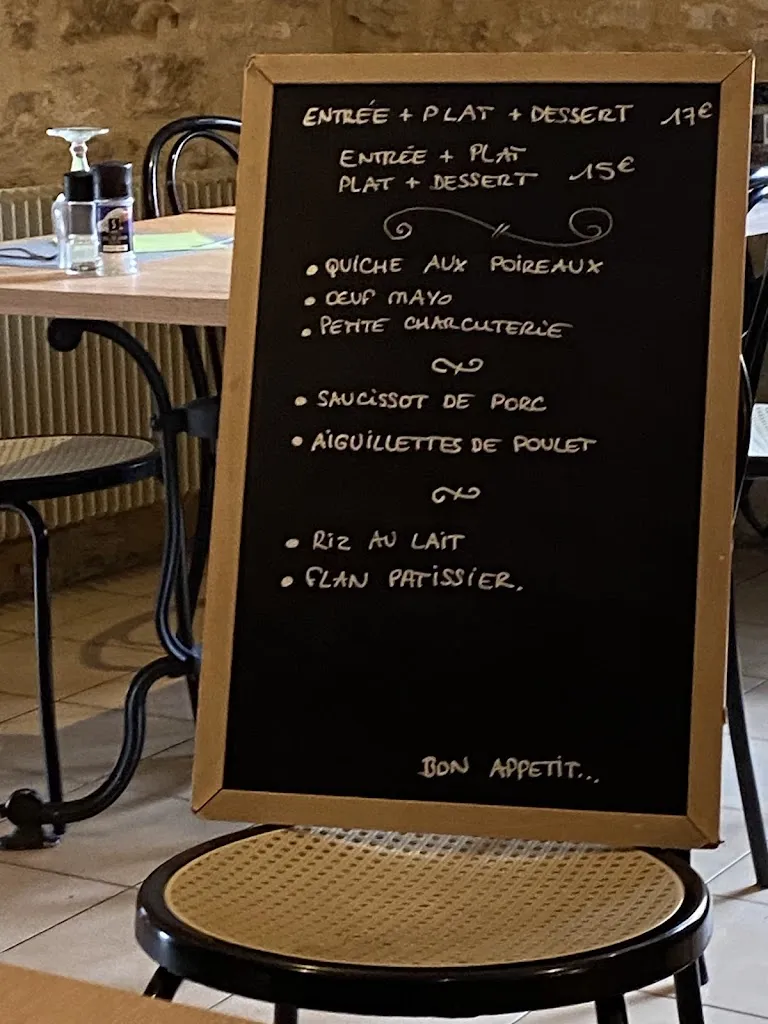 ENTRÉE + PLAT + DESSERT 17€
ENTRÉE + PLAT
PLAT + DESSERT 15€
• QUICHE AUX POIREAUX
• OEUF MAYO
• PETITE CHARCUTERIE
• SAUCISSOT DE PORC
• AIGUILLETTES DE POULET
• RIZ AU LAIT
• FLAN PATISSIER.
BON APPETIT...